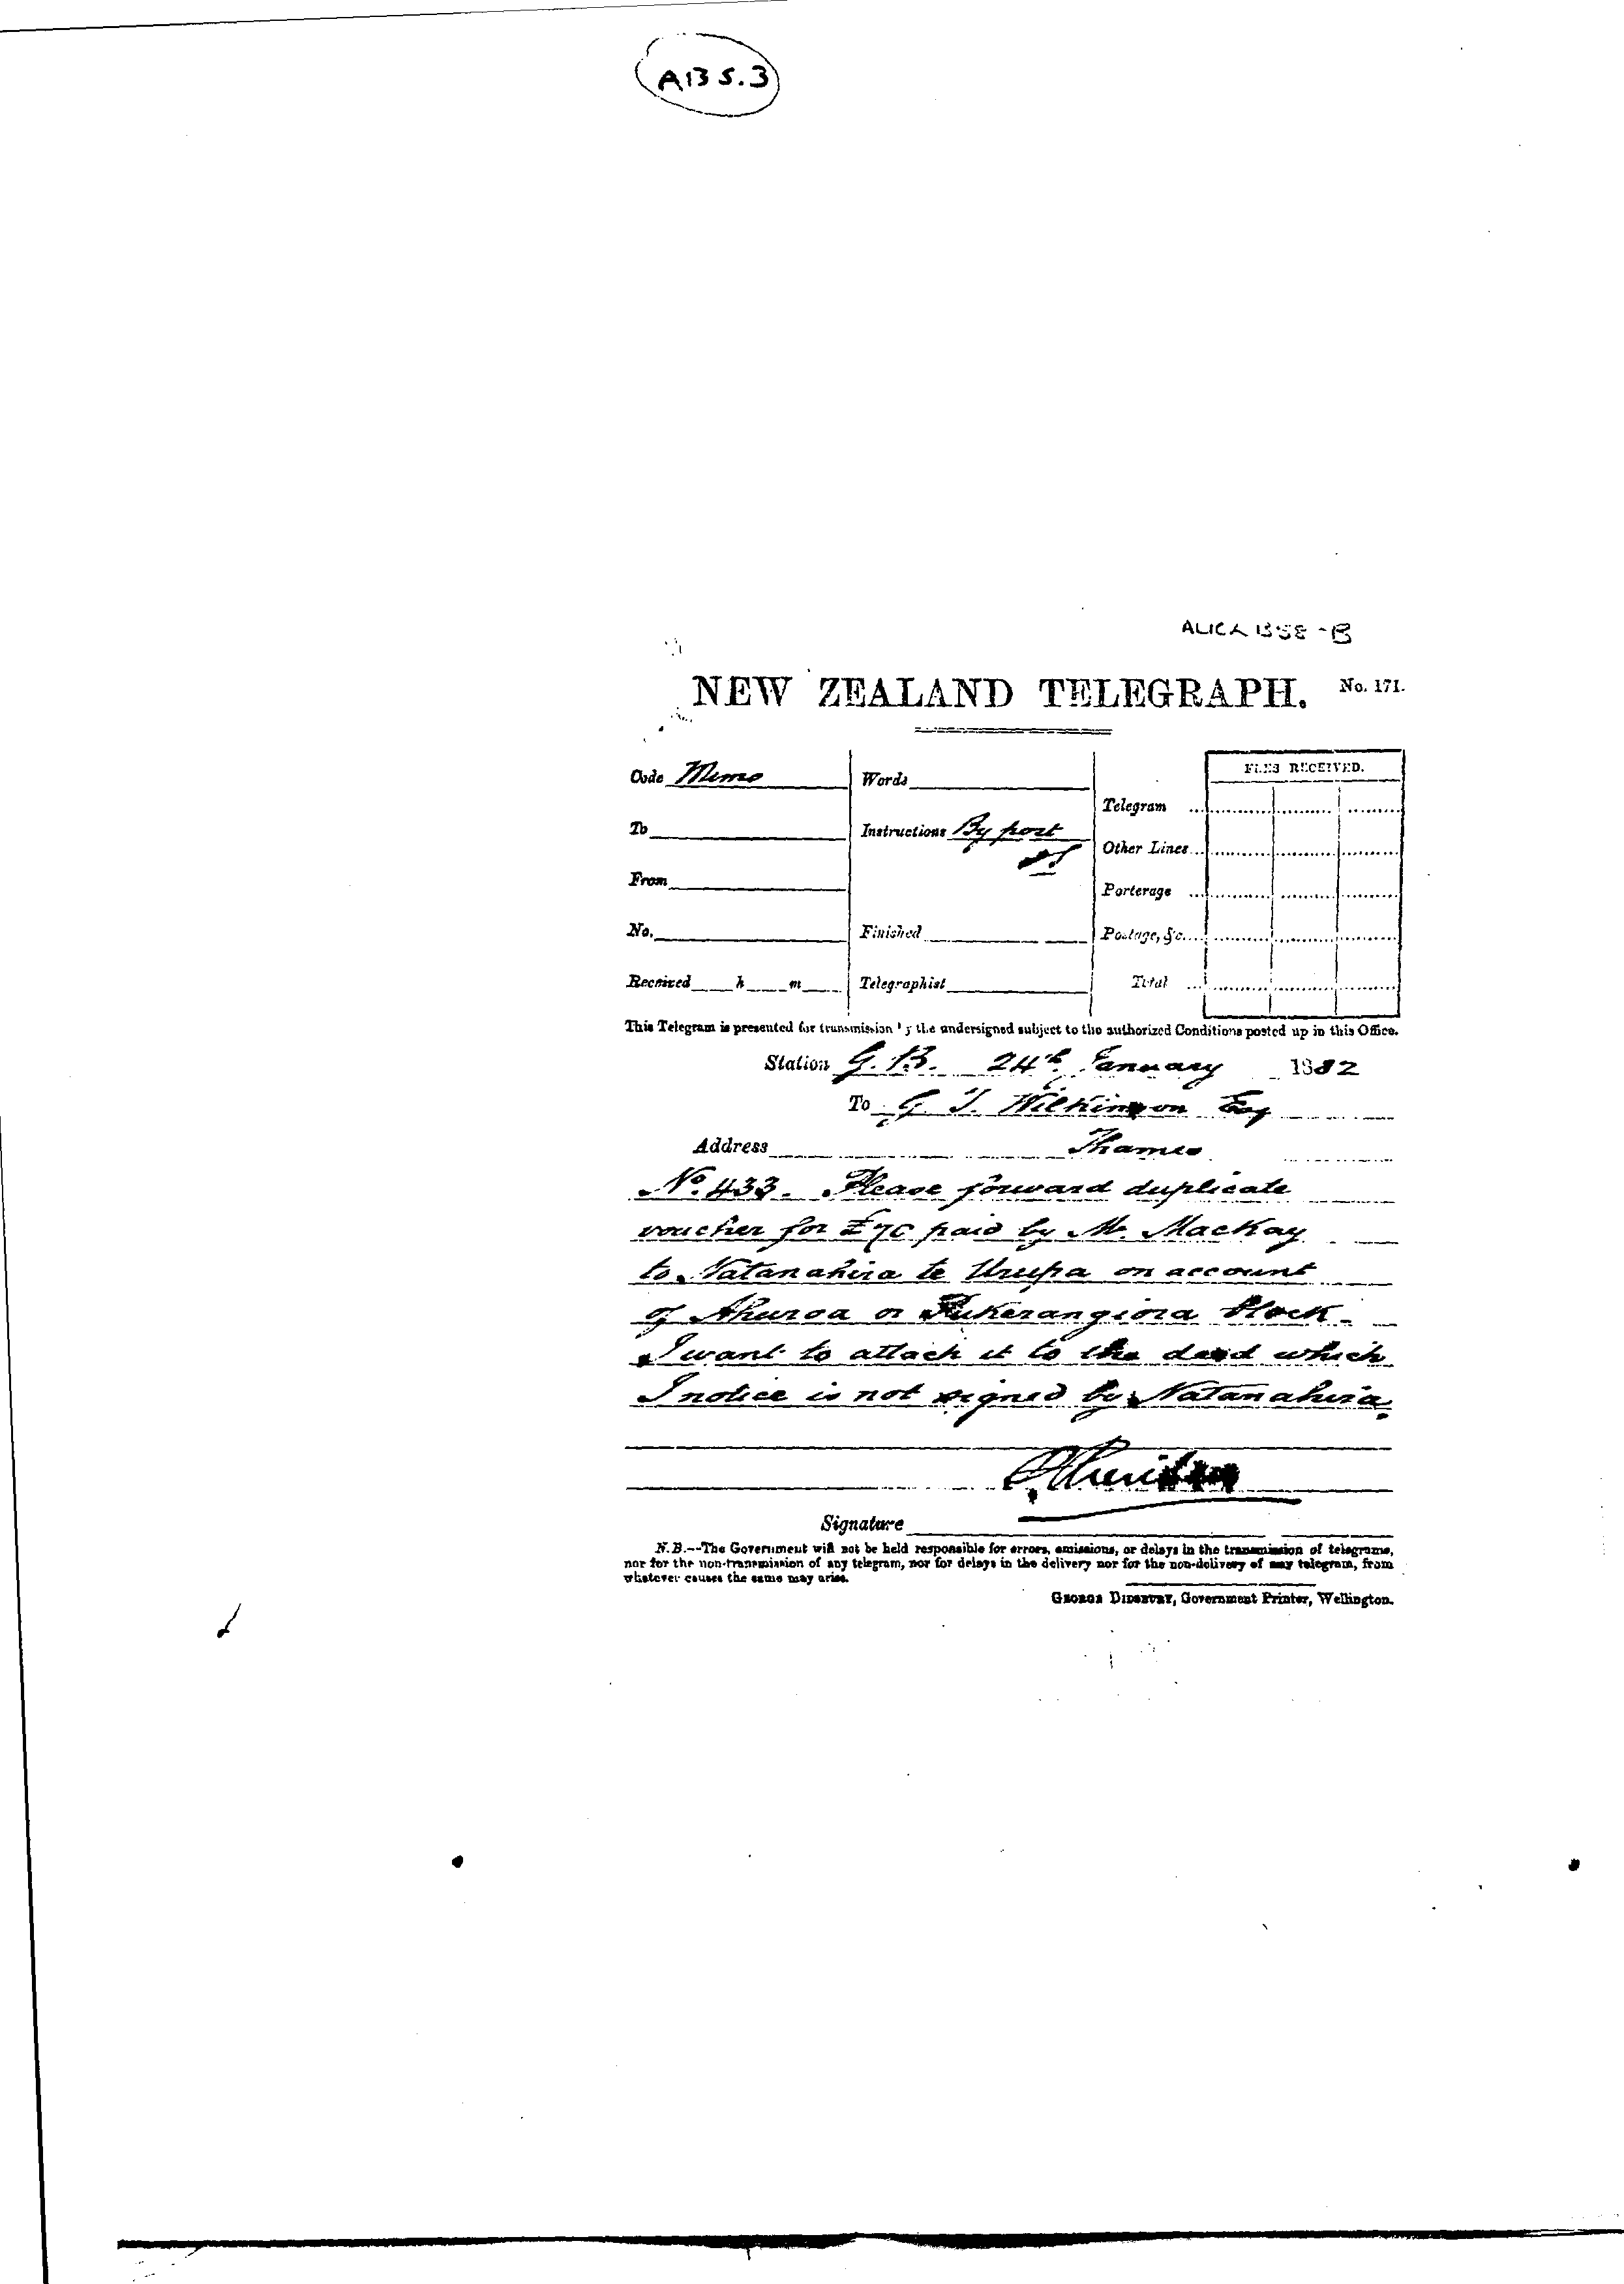 A13 S.3
NEW ZEALAND TELEGRAPH. No. 171.
FEES RECEIVED.
Code Memo Words
Telegram
To Instructions By post
Other Lines
From
Porterage
No. Finished Postage, &c.
Received h m Telegraphist Total
This Telegram is presented for transmission by the undersigned subject to the authorized Conditions posted up in this Office.
Station G. B. 24th January 1882
To G. T. Wilkinson Esq
Address Thames
No. 433. Please forward duplicate
voucher for £70 paid by Mr. MacKay
to Natanahira te Urupa on account
of Ahuroa or Pukerangiora Block.
I want to attach it to the deed which
I notice is not signed by Natanahira
Signature
N.B.--The Government will not be held responsible for errors, omissions, or delays in the transmission of telegrams,
nor for the non-transmission of any telegram, nor for delays in the delivery nor for the non-delivery of any telegram, from
whatever causes the same may arise.
GEORGE DIDSBURY, Government Printer, Wellington.